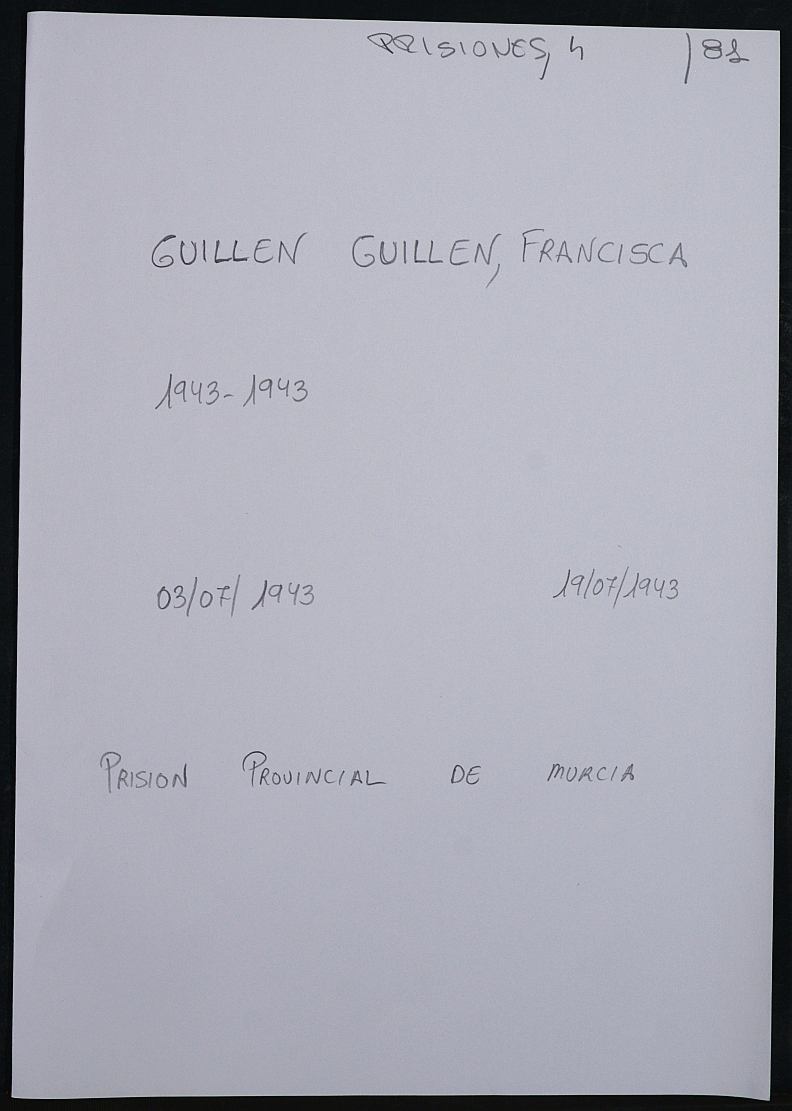 PRISIONES, 4 /81
GUILLEN GUILLEN, FRANCISCA
1943-1943
03/07/1943 19/07/1943
PRISION PROVINCIAL DE MURCIA